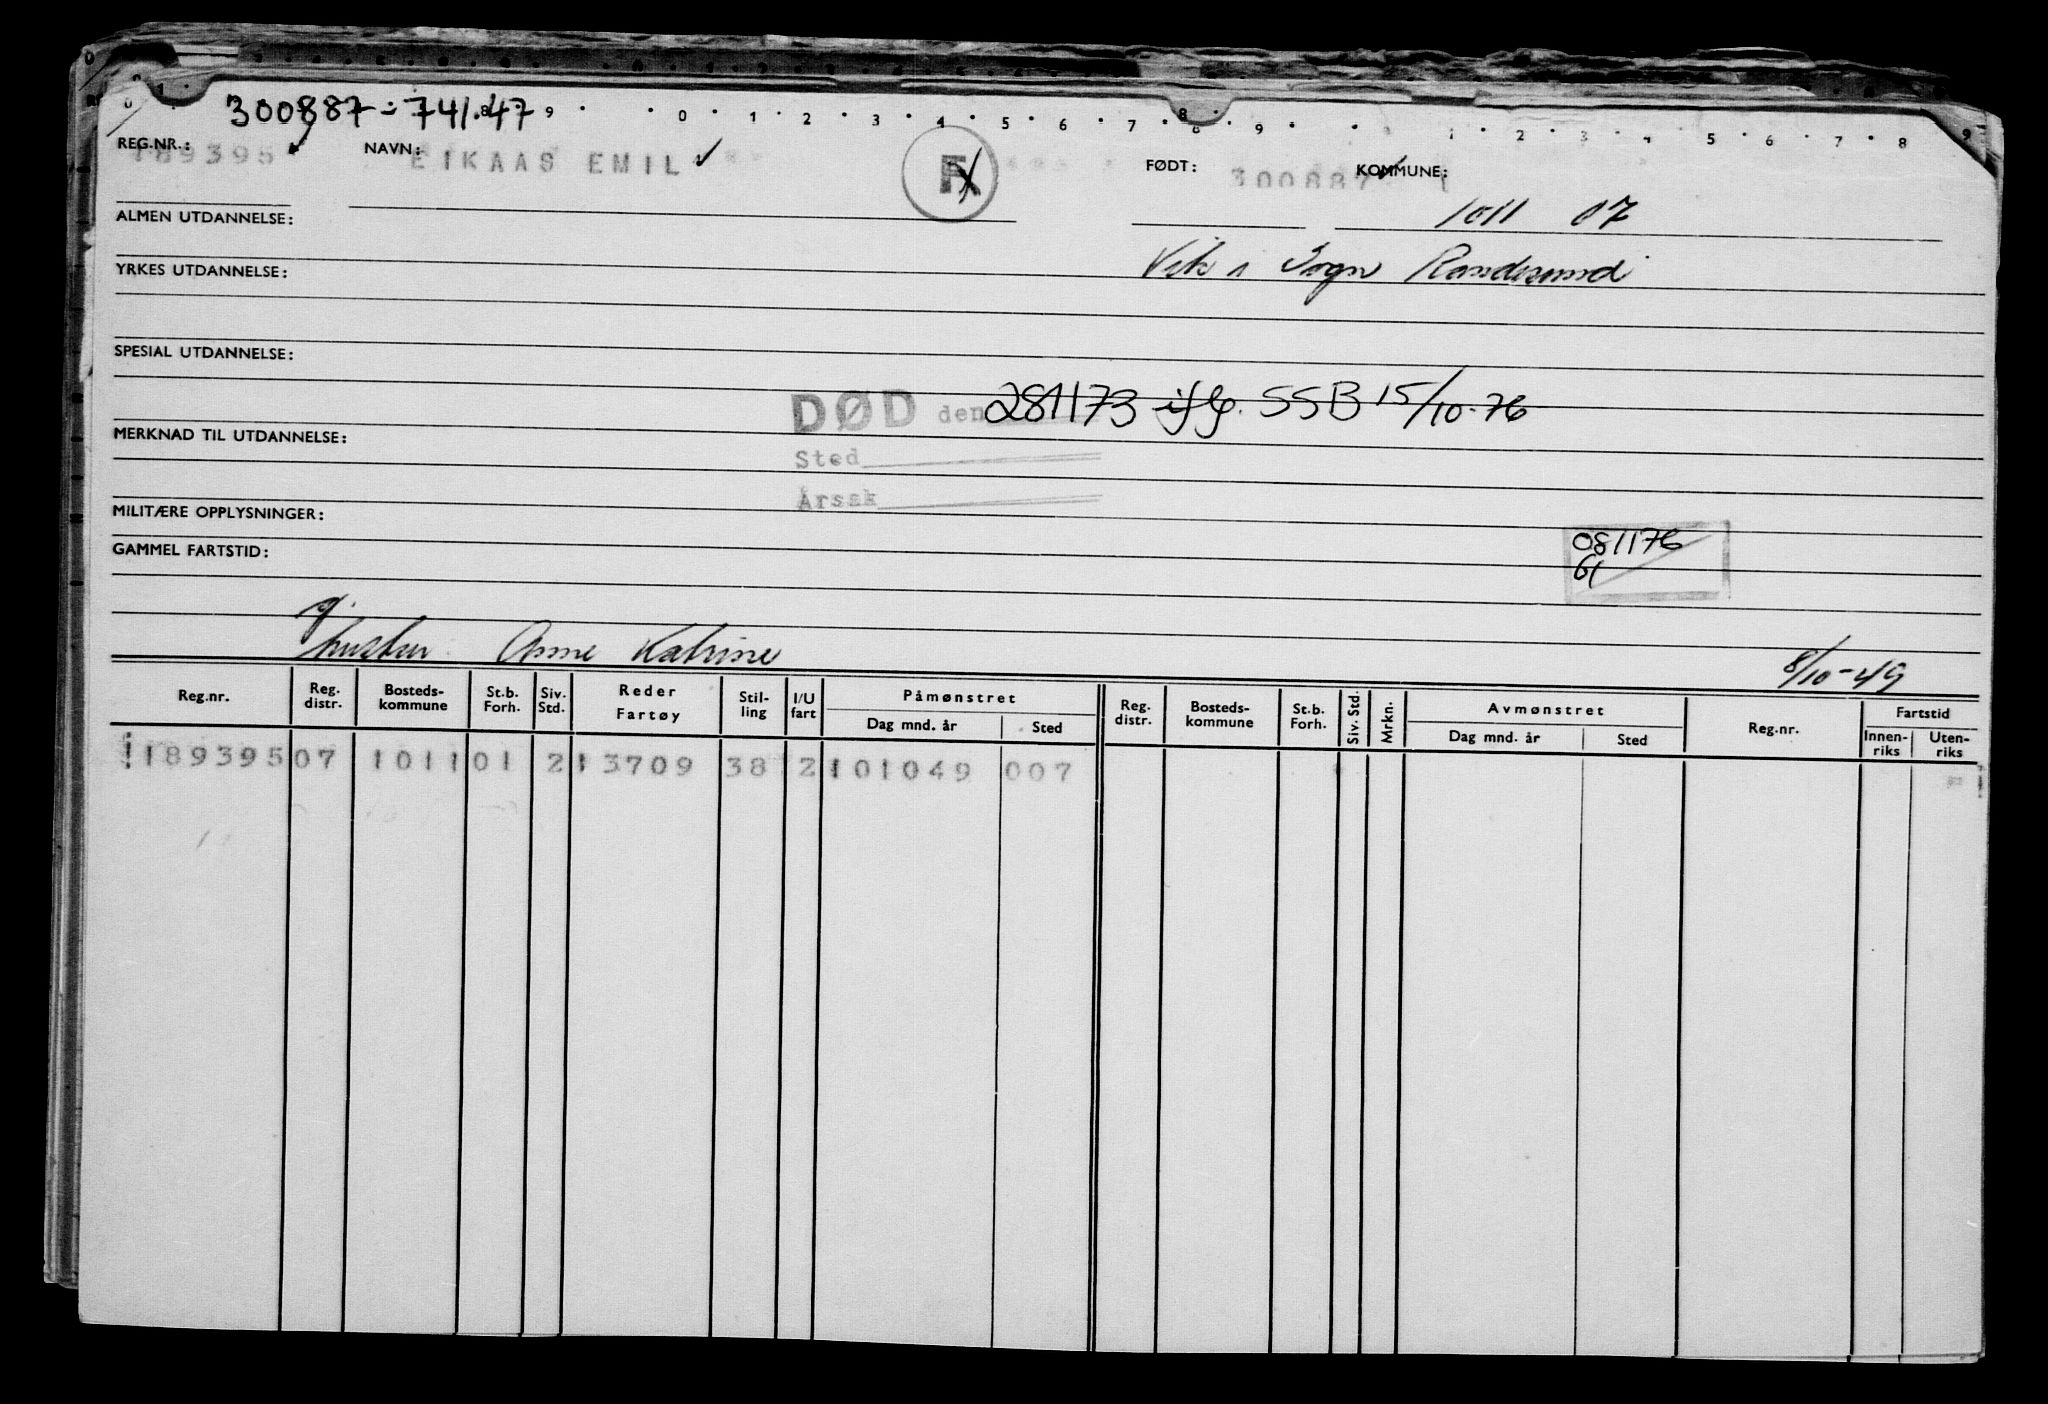 300887-741.47
REG.NR.: 189395 NAVN: EIKAAS EMIL FØDT: 300887 KOMMUNE:
1011 07
ALMEN UTDANNELSE:
Vik i Sogn Randesund
YRKES UTDANNELSE:
SPESIAL UTDANNELSE:
DØD den 281173 iflg. SSB 15/10-76
MERKNAD TIL UTDANNELSE:
Sted
Årsak
MILITÆRE OPPLYSNINGER:
081176
GAMMEL FARTSTID:
hustru Anne Katrine
8/10-49
Reg.nr. Reg. distr. Bosteds- kommune St.b. Forh. Siv. Std. Reder Fartøy Stil- ling I/U fart Påmønstret Dag mnd. år Sted Reg. distr. Bosteds- kommune St.b. Forh. Siv. Std. Mrkn. Avmønstret Dag mnd. år Sted Reg.nr. Fartstid Innen- riks Uten- riks
189395 07 1011 01 2 13709 38 2 101049 007